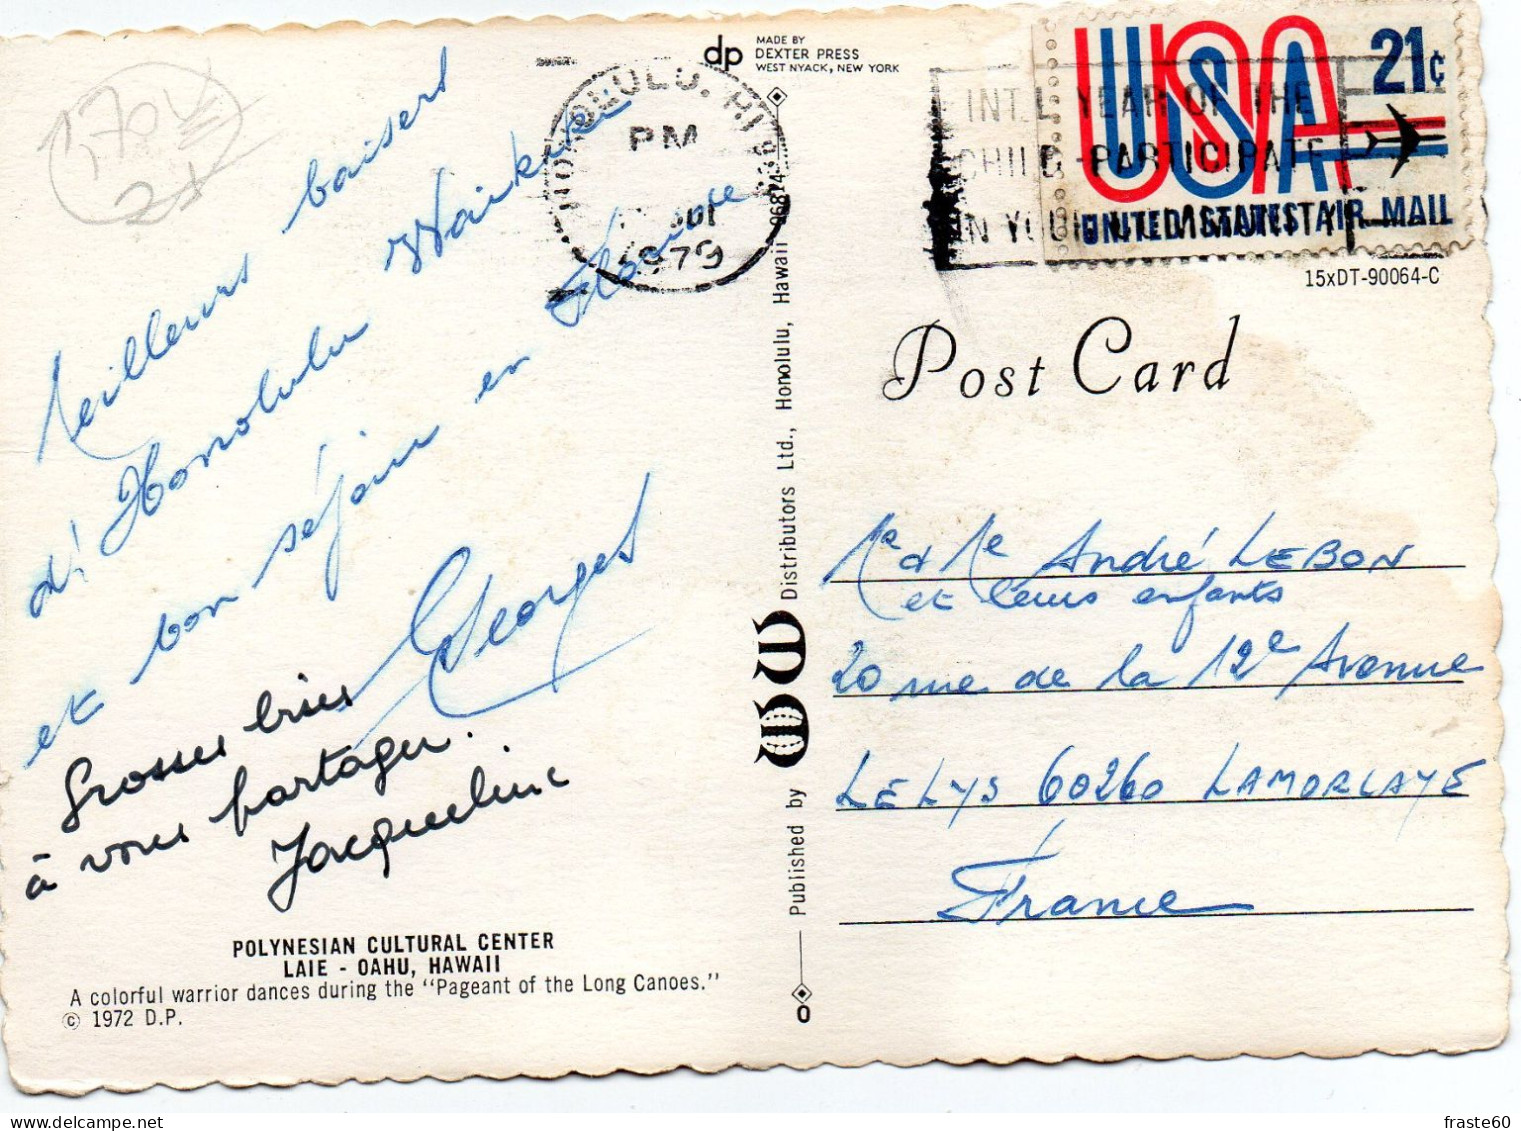 170V
2x
Meilleurs baisers
d'Honolulu Waikiki
et bon séjour en
Georges
Grosses bises
à vous partager.
Jacqueline
POLYNESIAN CULTURAL CENTER
LAIE - OAHU, HAWAII
A colorful warrior dances during the "Pageant of the Long Canoes."
© 1972 D.P.
dp
MADE BY
DEXTER PRESS
WEST NYACK, NEW YORK
HONOLULU, HI
PM
1979
Published by WW Distributors Ltd., Honolulu, Hawaii
O
INT'L YEAR OF THE
CHILD-PARTICIPATE
IN YOUR COMMUNITY
USA
21¢
UNITED STATES AIR MAIL
15xDT-90064-C
Post Card
Mr & Me André LEBON
et leurs enfants
20 rue de la 12e Avenue
LE LYS 60260 LAMORLAYE
France
fraste60